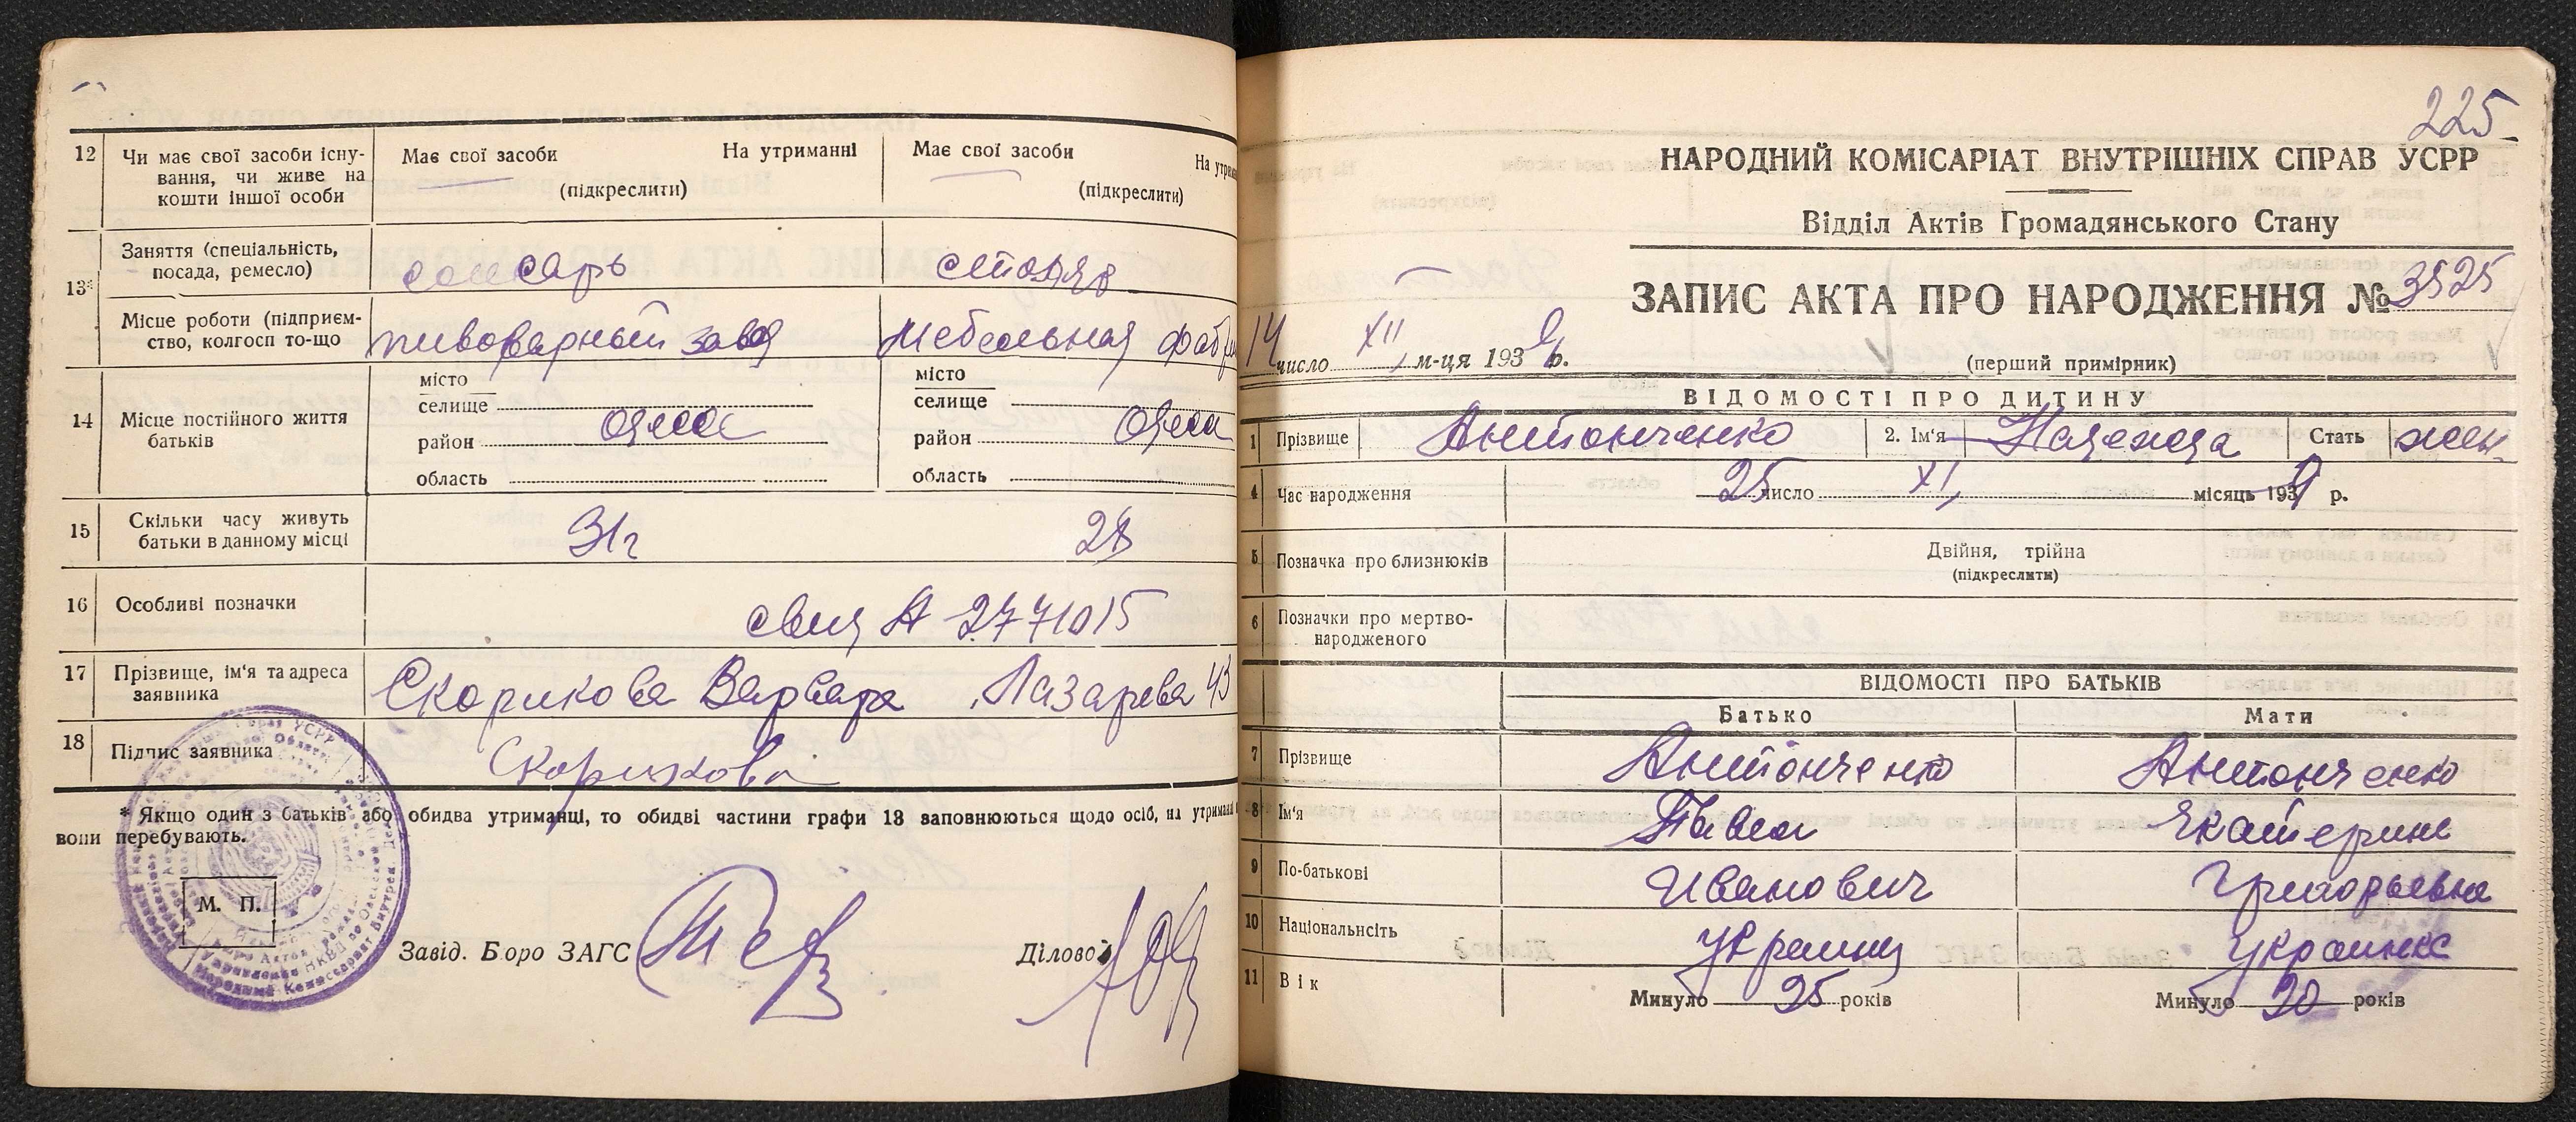 12 Чи має свої засоби існу-
вання, чи живе на
кошти іншої особи
Має свої засоби На утриманні
(підкреслити)
Має свої засоби На утрима
(підкреслити)
13* Заняття (спеціальність,
посада, ремесло)
слесарь
столяр
Місце роботи (підприєм-
ство, колгосп то-що
пивоварный завод
Мебельная фабр
14 Місце постійного життя
батьків
місто
селище
район Одесса
область
місто
селище
район Одесса
область
15 Скільки часу живуть
батьки в данному місці
31г
28
16 Особливі позначки
свид А 2771015
17 Прізвище, ім'я та адреса
заявника
Скорикова Варвара, Лазарева 43
18 Підпис заявника
Скорикова
* Якщо один з батьків або обидва утриманці, то обидві частини графи 13 заповнюються щодо осіб, на утриманні
вони перебувають.
М. П.
Завід. Бюро ЗАГС
Діловод
225
НАРОДНИЙ КОМІСАРІАТ ВНУТРІШНІХ СПРАВ УСРР
Відділ Актів Громадянського Стану
ЗАПИС АКТА ПРО НАРОДЖЕННЯ № 3525
14 число XII м-ця 1939 р.
(перший примірник)
ВІДОМОСТІ ПРО ДИТИНУ
1 Прізвище Антонченко 2. Ім'я Надежда Стать жен.
4 Час народження 25 число XI, місяць 1939 р.
5 Позначка про близнюків
Двійня, трійна
(підкреслити)
6 Позначки про мертво-
народженого
ВІДОМОСТІ ПРО БАТЬКІВ
Батько Мати
7 Прізвище Антонченко Антонченко
8 Ім'я Павел Екатерина
9 По-батькові Иванович Григорьевна
10 Національнсіть Украинец Украинка
11 Вік Минуло 25 років Минуло 20 років